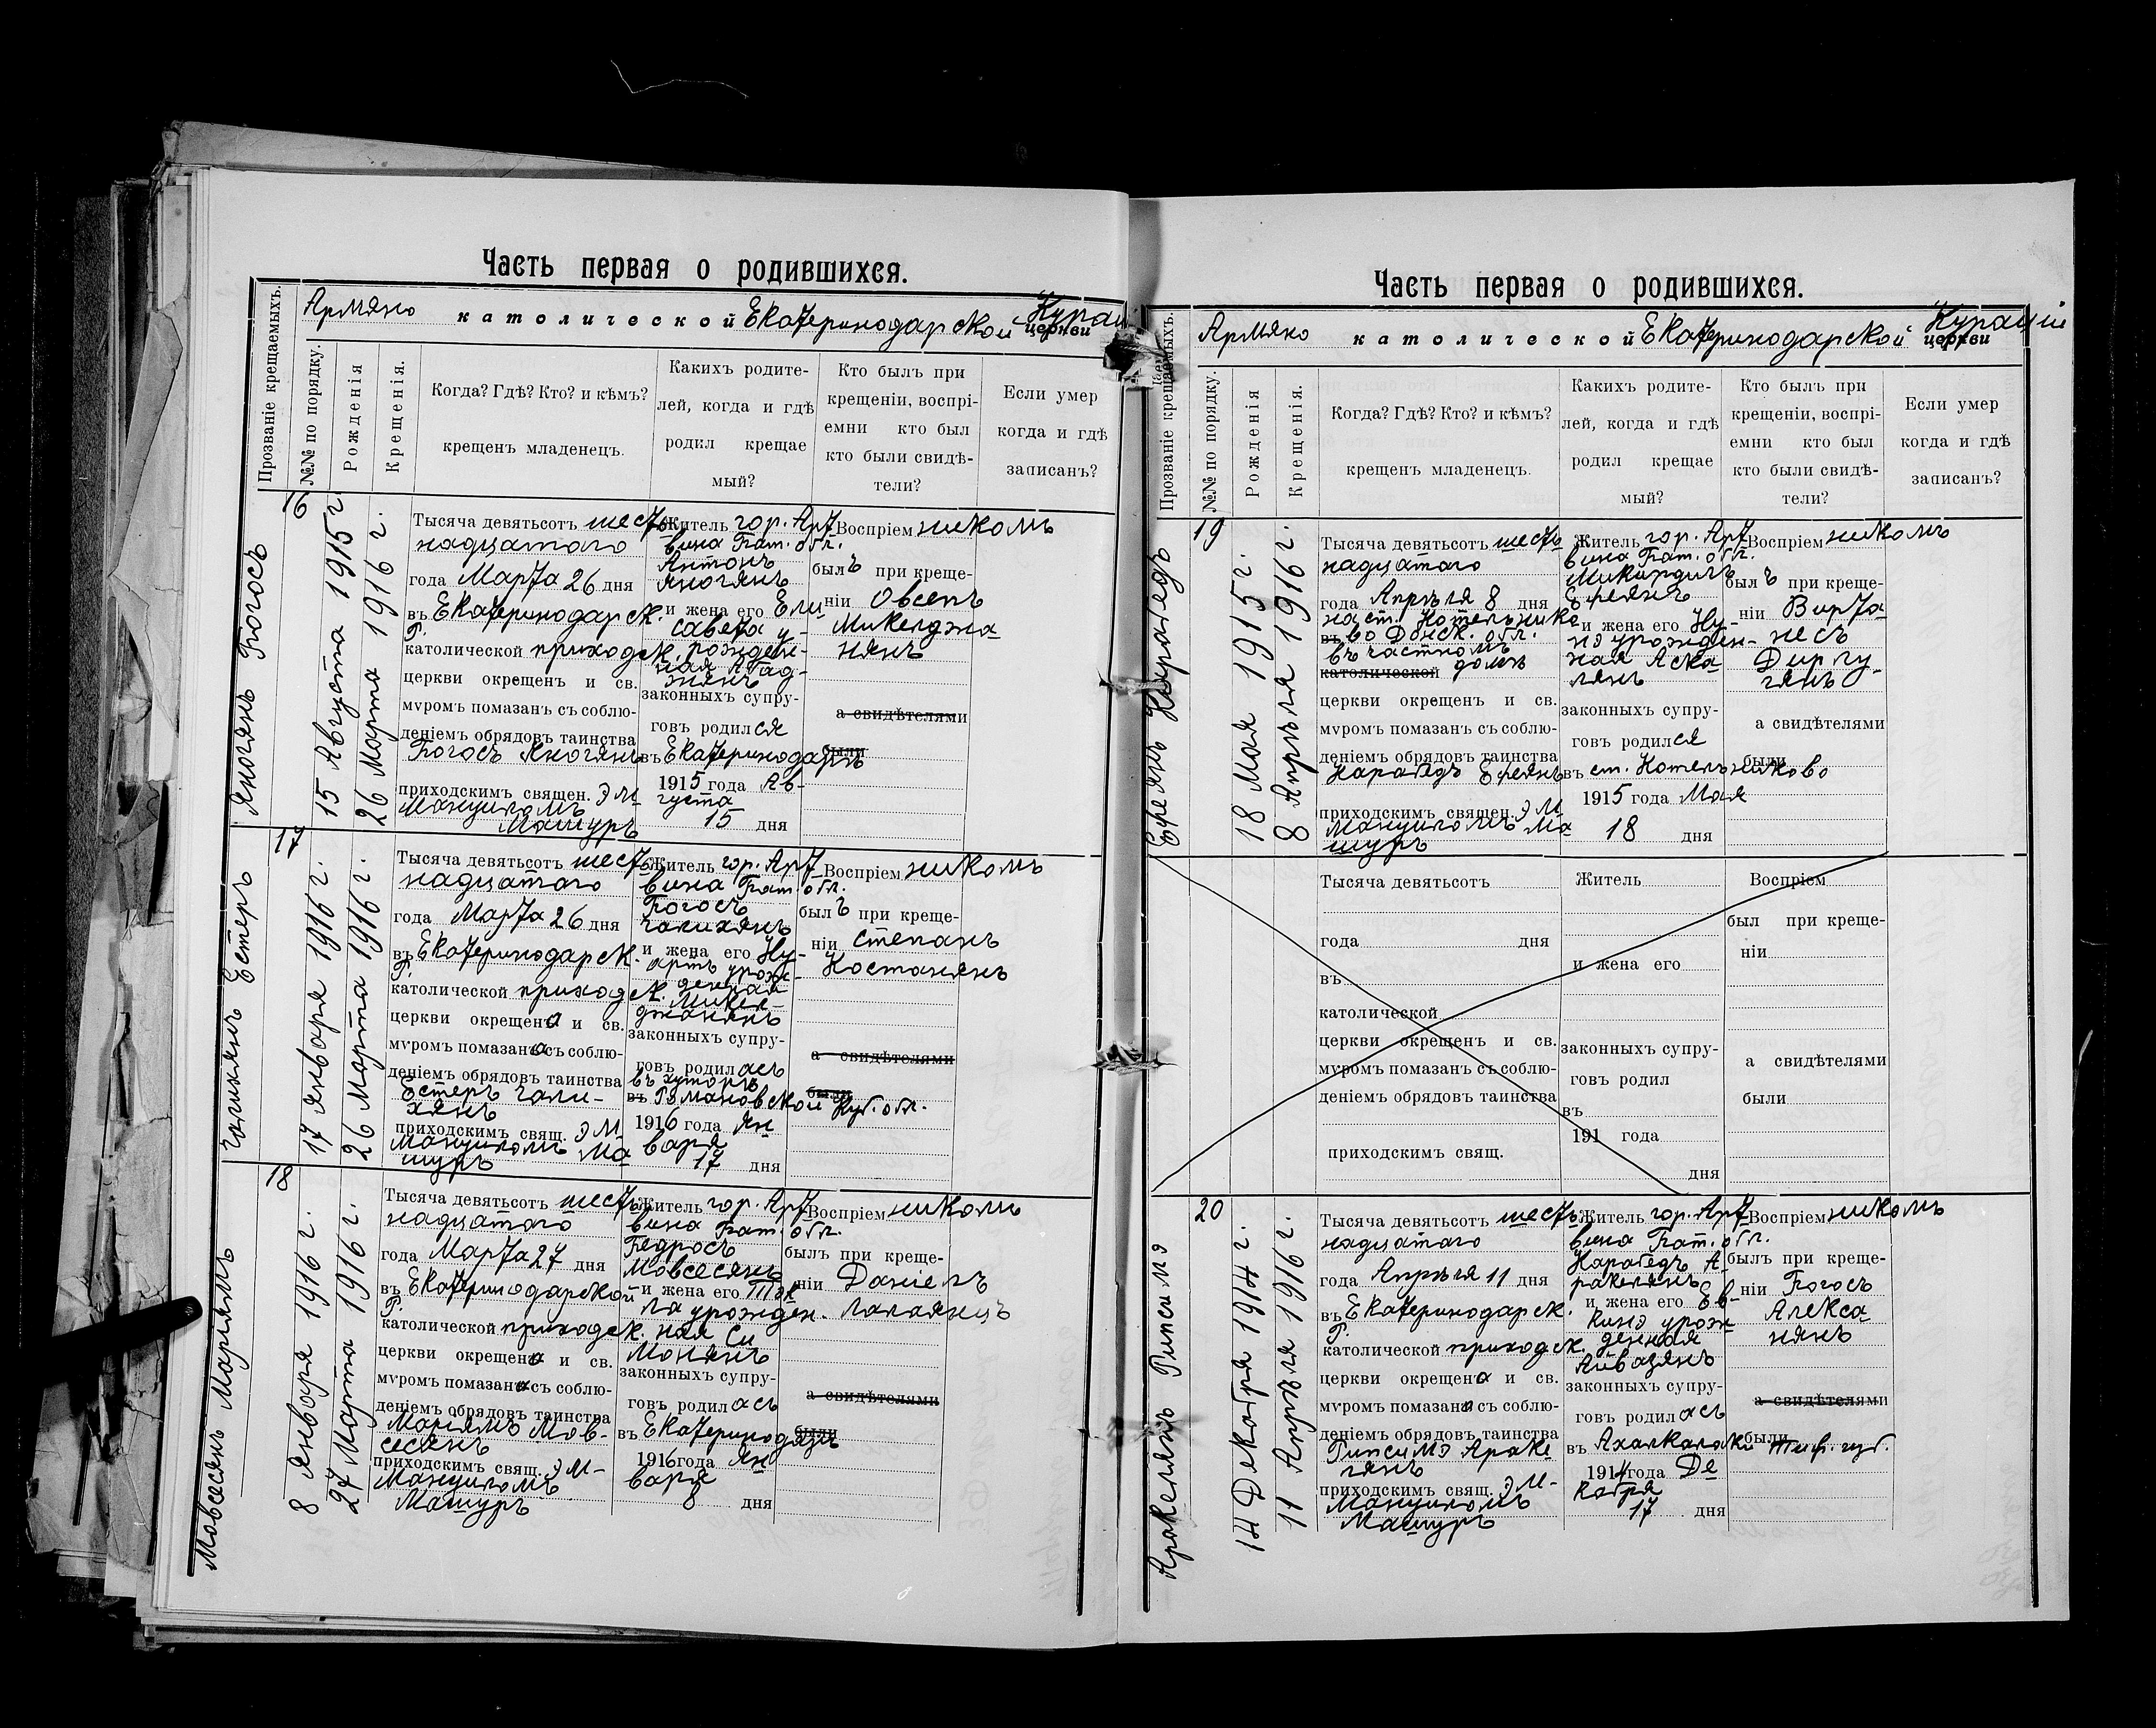 Часть первая о родившихся.
Армяно католической Екатеринодарской Кураціи церкви
Прозваніе крещаемыхъ.
№№ по порядку.
Рожденія
Крещенія.
Когда? Гдѣ? Кто? и кѣмъ?
крещенъ младенецъ.
Какихъ родите-
лей, когда и гдѣ
родил крещае
мый?
Кто былъ при
крещеніи, воспрі-
емни кто был
кто были свидѣ-
тели?
Если умер
когда и гдѣ
записанъ?
Яногянъ Богосъ
16
15 Августа 1915 г.
26 Марта 1916 г.
Тысяча девятьсот шестъ
надцатаго
года Марта 26 дня
въ Екатеринодарск.
Р.
католической приходск.
церкви окрещенъ и св.
мѵромъ помазанъ съ соблю-
деніемъ обрядовъ таинства
Богосъ Яногянъ
приходскимъ священ. Эм-
мануиломъ
Машуръ
Житель гор. Арт-
вина Бат. обл.
Антонъ
Яногянъ
и жена его Ели
савета у-
рожден-
ная Абад-
жянъ
законныхъ супру-
говъ родился
въ Екатеринодарѣ
1915 года Ав-
густа
15 дня
Воспріем никомъ
былъ при креще-
ніи Овсепъ
Микелджа
нянъ
а свидѣтелями
были
Чалихянъ Естеръ
17
17 января 1916 г.
26 Марта 1916 г.
Тысяча девятьсот шестъ
надцатаго
года Марта 26 дня
въ Екатеринодарск.
Р.
католической приходск.
церкви окрещена и св.
мѵромъ помазана съ соблю-
деніемъ обрядовъ таинства
Естеръ Чали-
хянъ
приходскимъ свящ. Эм
мануиломъ Ма
шуръ
Житель гор. Арт-
вина Бат. обл.
Богосъ
Чалихянъ
и жена его Ну-
артъ урож-
денная
Микел-
джанянъ
законныхъ супру-
говъ родилась
въ хуторѣ
въ Романовской Куб. обл.
1916 года Ян
варя
17 дня
Воспріем никомъ
былъ при креще-
ніи Степанъ
Костанянъ
а свидѣтелями
были
Мовсесянъ Маріямъ
18
8 января 1916 г.
27 Марта 1916 г.
Тысяча девятьсот шестъ
надцатаго
года Марта 27 дня
въ Екатеринодарской
Р.
католической приходск.
церкви окрещена и св.
мѵромъ помазана съ соблю-
деніемъ обрядовъ таинства
Маріямъ Мов-
сесянъ
приходскимъ свящ. Эм-
мануиломъ
Машуръ
Житель гор. Арт-
вина Бат. обл.
Бедросъ
Мовсесянъ
и жена его Тэк
ла урожден.
ная Си
монянъ
законныхъ супру-
говъ родилась
въ Екатеринодарѣ
1916 года Ян
варя
8 дня
Воспріем никомъ
былъ при креще-
ніи Даніелъ
Лалаянцъ
а свидѣтелями
были
Часть первая о родившихся.
Армяно католической Екатеринодарской Кураціи церкви
Прозваніе крещаемыхъ.
№№ по порядку.
Рожденія
Крещенія.
Когда? Гдѣ? Кто? и кѣмъ?
крещенъ младенецъ.
Какихъ родите-
лей, когда и гдѣ
родил крещае
мый?
Кто былъ при
крещеніи, воспрі-
емни кто был
кто были свидѣ-
тели?
Если умер
когда и гдѣ
записанъ?
Ефреянъ Карабедъ
19
18 Мая 1915 г.
8 Апрѣля 1916 г.
Тысяча девятьсот шестъ
надцатаго
года Апрѣля 8 дня
на ст. Котельнико
въ во Донск. обл.
въ частномъ
католической домѣ
церкви окрещенъ и св.
мѵромъ помазанъ съ соблю-
деніемъ обрядовъ таинства
Карабедъ Ефреянъ
приходскимъ священ. Эм
мануиломъ Ма
шуръ
Житель гор. Арт-
вина Бат. обл.
Микиртичъ
Ефреянъ
и жена его Ну-
нэ урожден-
ная Аска
лянъ
законныхъ супру-
говъ родился
въ ст. Котельниково
1915 года Мая
18 дня
Воспріем никомъ
былъ при креще-
ніи Вирта
несъ
Диргу-
гянъ
а свидѣтелями
были
Тысяча девятьсот
года дня
въ
католической
церкви окрещенъ и св.
мѵромъ помазанъ съ соблю-
деніемъ обрядовъ таинства
приходскимъ свящ.
Житель
и жена его
законныхъ супру-
говъ родил
въ
191 года
дня
Воспріем
был при креще-
ніи
а свидѣтелями
были
Аракелянъ Рипсимэ
20
14 Декабря 1914 г.
11 Апрѣля 1916 г.
Тысяча девятьсот шестъ
надцатаго
года Апрѣля 11 дня
въ Екатеринодарск.
Р.
католической приходск.
церкви окрещена и св.
мѵромъ помазана съ соблю-
деніемъ обрядовъ таинства
Рипсимэ Араке
лянъ
приходскимъ свящ. Эм-
мануиломъ
Машуръ
Житель гор. Арт-
вина Бат. обл.
Карабедъ А-
ракелянъ
и жена его Ев-
кинэ урож
денная
Айвазянъ
законныхъ супру-
говъ родилась
въ Ахалкалаки Тиф. губ.
1914 года Де
кабря
17 дня
Воспріем никомъ
былъ при креще-
ніи Богосъ
Алекса
нянъ
а свидѣтелями
были